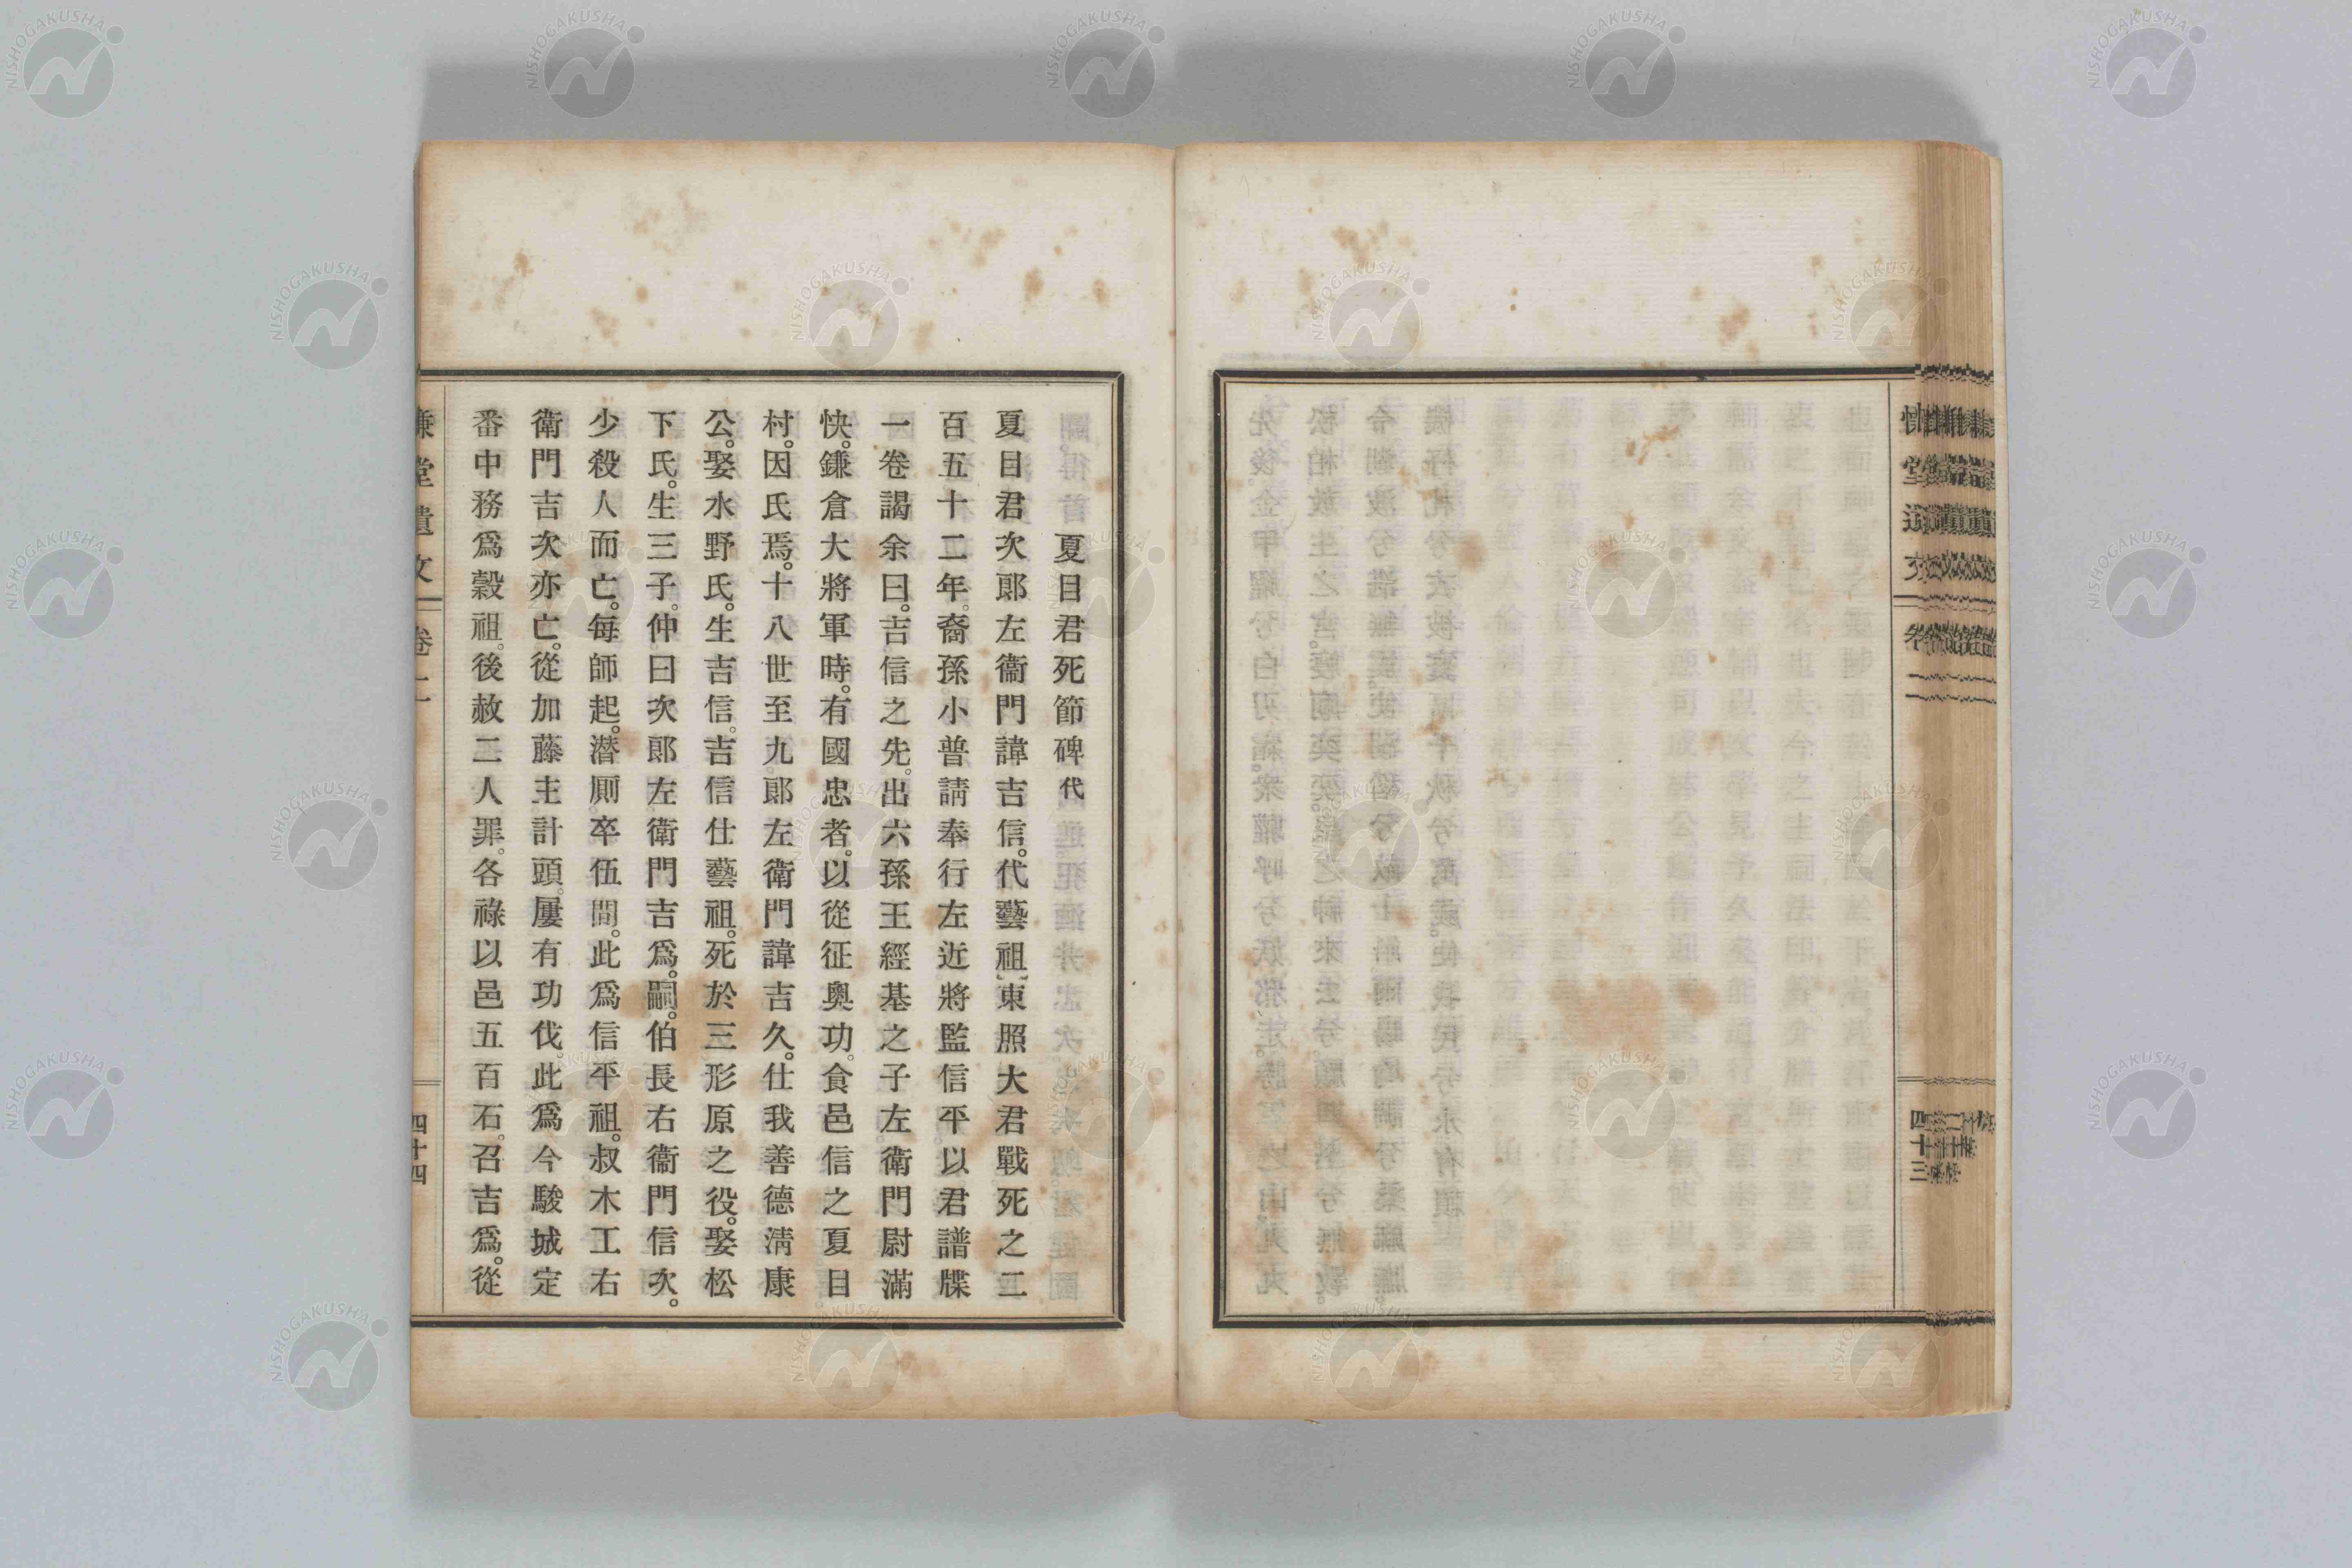 四十三
夏目君死節碑代
夏目君次郎左衞門諱吉信。代藝祖東照大君戰死之二
百五十二年。裔孫小普請奉行左近將監信平以君譜牒
一卷謁余曰。吉信之先。出六孫王經基之子左衞門尉滿
快。鎌倉大將軍時。有國忠者。以從征奧功。食邑信之夏目
村。因氏焉。十八世至九郎左衞門諱吉久。仕我善德淸康
公。娶水野氏。生吉信。吉信仕藝祖。死於三形原之役。娶松
下氏。生三子。仲曰次郎左衞門吉爲。嗣。伯長右衞門信次。
少殺人而亡。每師起。潛厠卒伍間。此爲信平祖。叔木工右
衞門吉次亦亡。從加藤主計頭。屢有功伐。此爲今駿城定
番中務爲穀祖。後赦二人罪。各祿以邑五百石。召吉爲。從
慊堂遺文 卷二 四十四
NISHOGAKUSHA